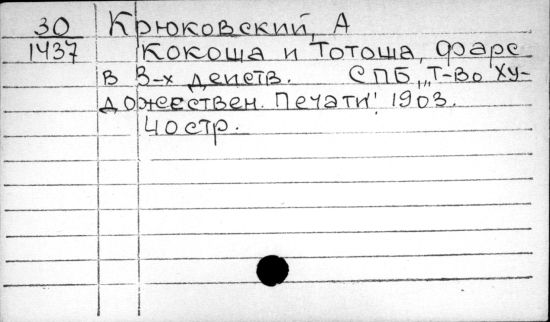 30 Крюковский, А
1437 Кокоша и Тотоша, фарс
в 3-х действ. СПБ, „Т-во Ху-
дожествен. Печати", 1903.
40 стр.